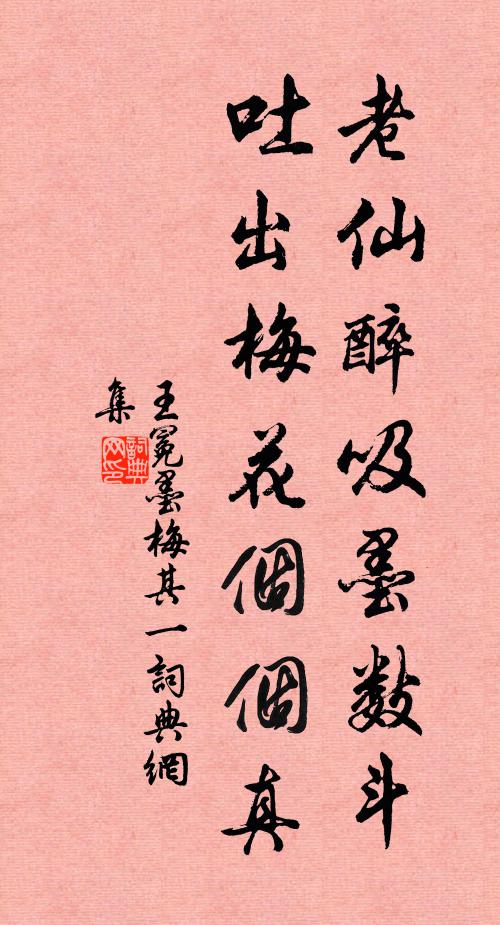 老仙醉吸墨数斗
吐出梅花個個真
王冕墨梅其一詞典網
集
詞典網印